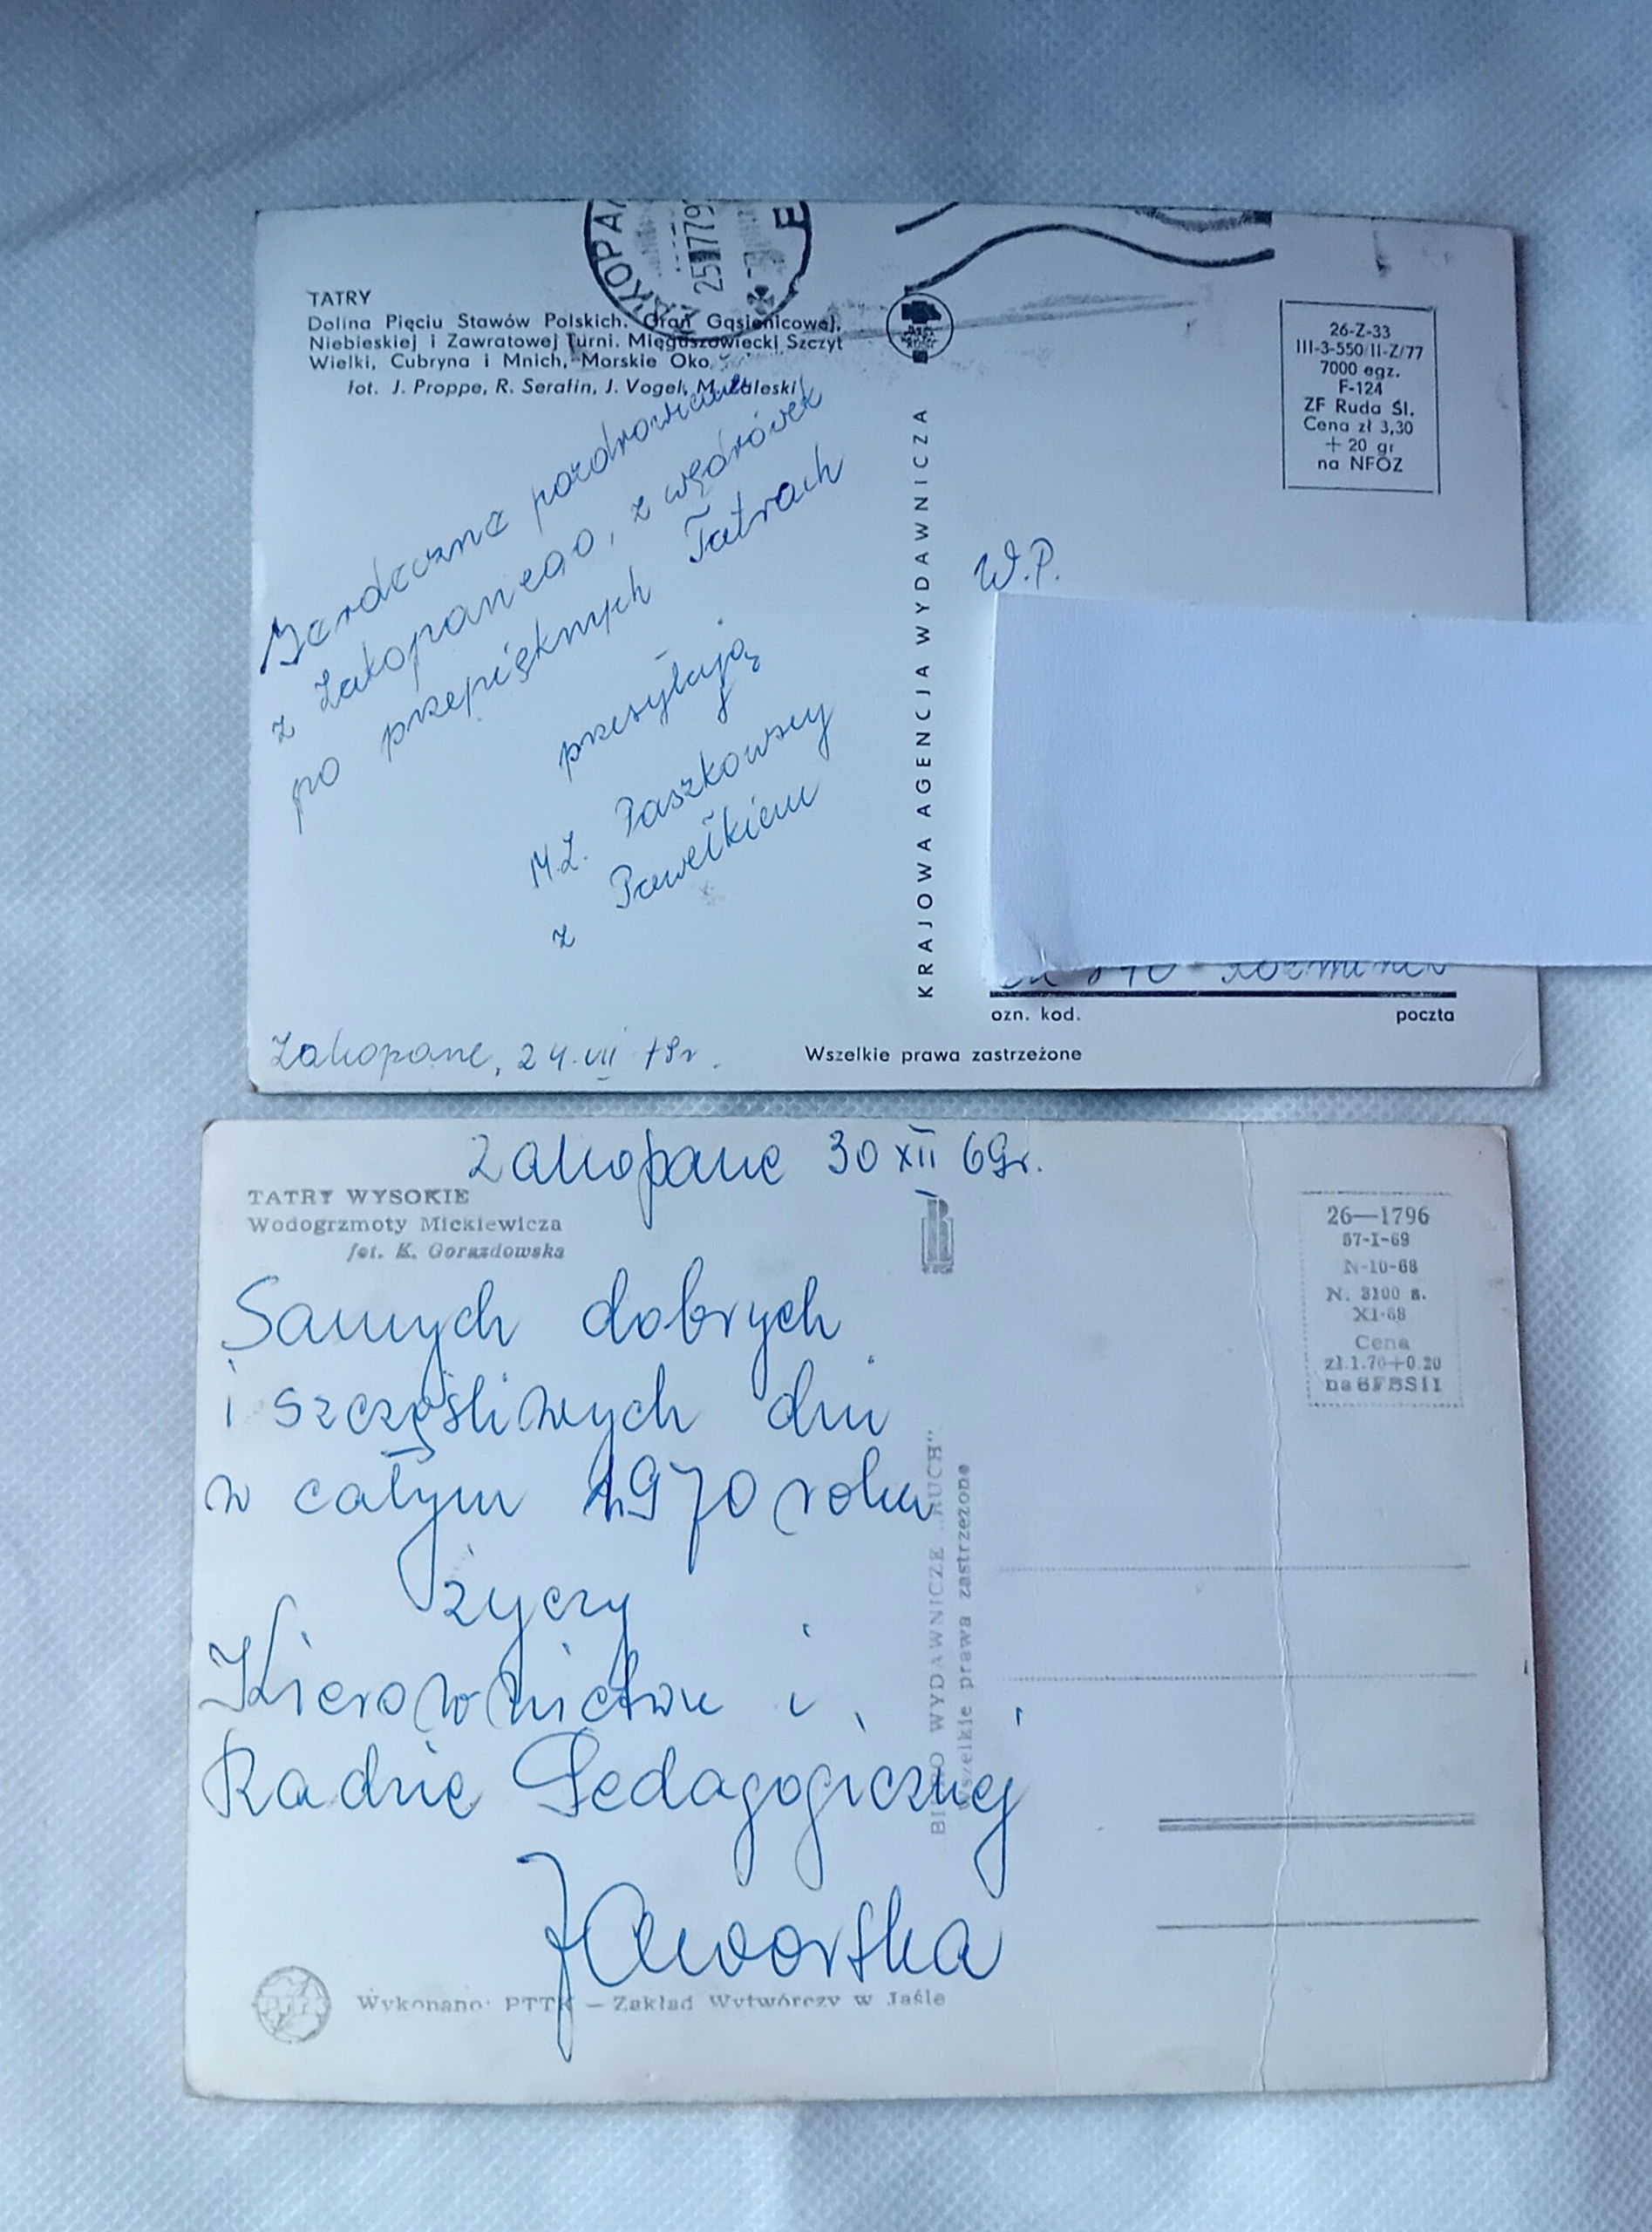 TATRY
Dolina Pięciu Stawów Polskich. Grań Gąsienicowej,
Niebieskiej i Zawratowej Turni. Mięguszowiecki Szczyt
Wielki, Cubryna i Mnich, Morskie Oko.
fot. J. Proppe, R. Serafin, J. Vogel, M. Zaleski
Serdeczne pozdrowienia
z Zakopanego, z wędrówek
po przepięknych Tatrach
przesyłają
M.Z. Paszkowscy
z Pawełkiem
Zakopane, 24.VII
KRAJOWA AGENCJA WYDAWNICZA
26-Z-33
III-3-550/II-Z/77
7000 egz.
F-124
ZF Ruda Śl.
Cena zł 3,30
+ 20 gr
na NFOZ
W.P.
ozn. kod.
poczta
Wszelkie prawa zastrzeżone
Zakopane 30 XII 69r.
TATRY WYSOKIE
Wodogrzmoty Mickiewicza
fot. K. Gorazdowska
Samych dobrych
i szczęśliwych dni
w całym 1970 roku
życzy
Kierownictwu i
Radzie Pedagogicznej
JAworska
BIURO WYDAWNICZE „RUCH"
Wszelkie prawa zastrzeżone
26—1796
57-I-69
N-10-68
N. 3100 s.
XI-68
Cena
zł.1.70+0.20
na SFBSiI
Wykonano: PTTK — Zakład Wytwórczy w Jaśle